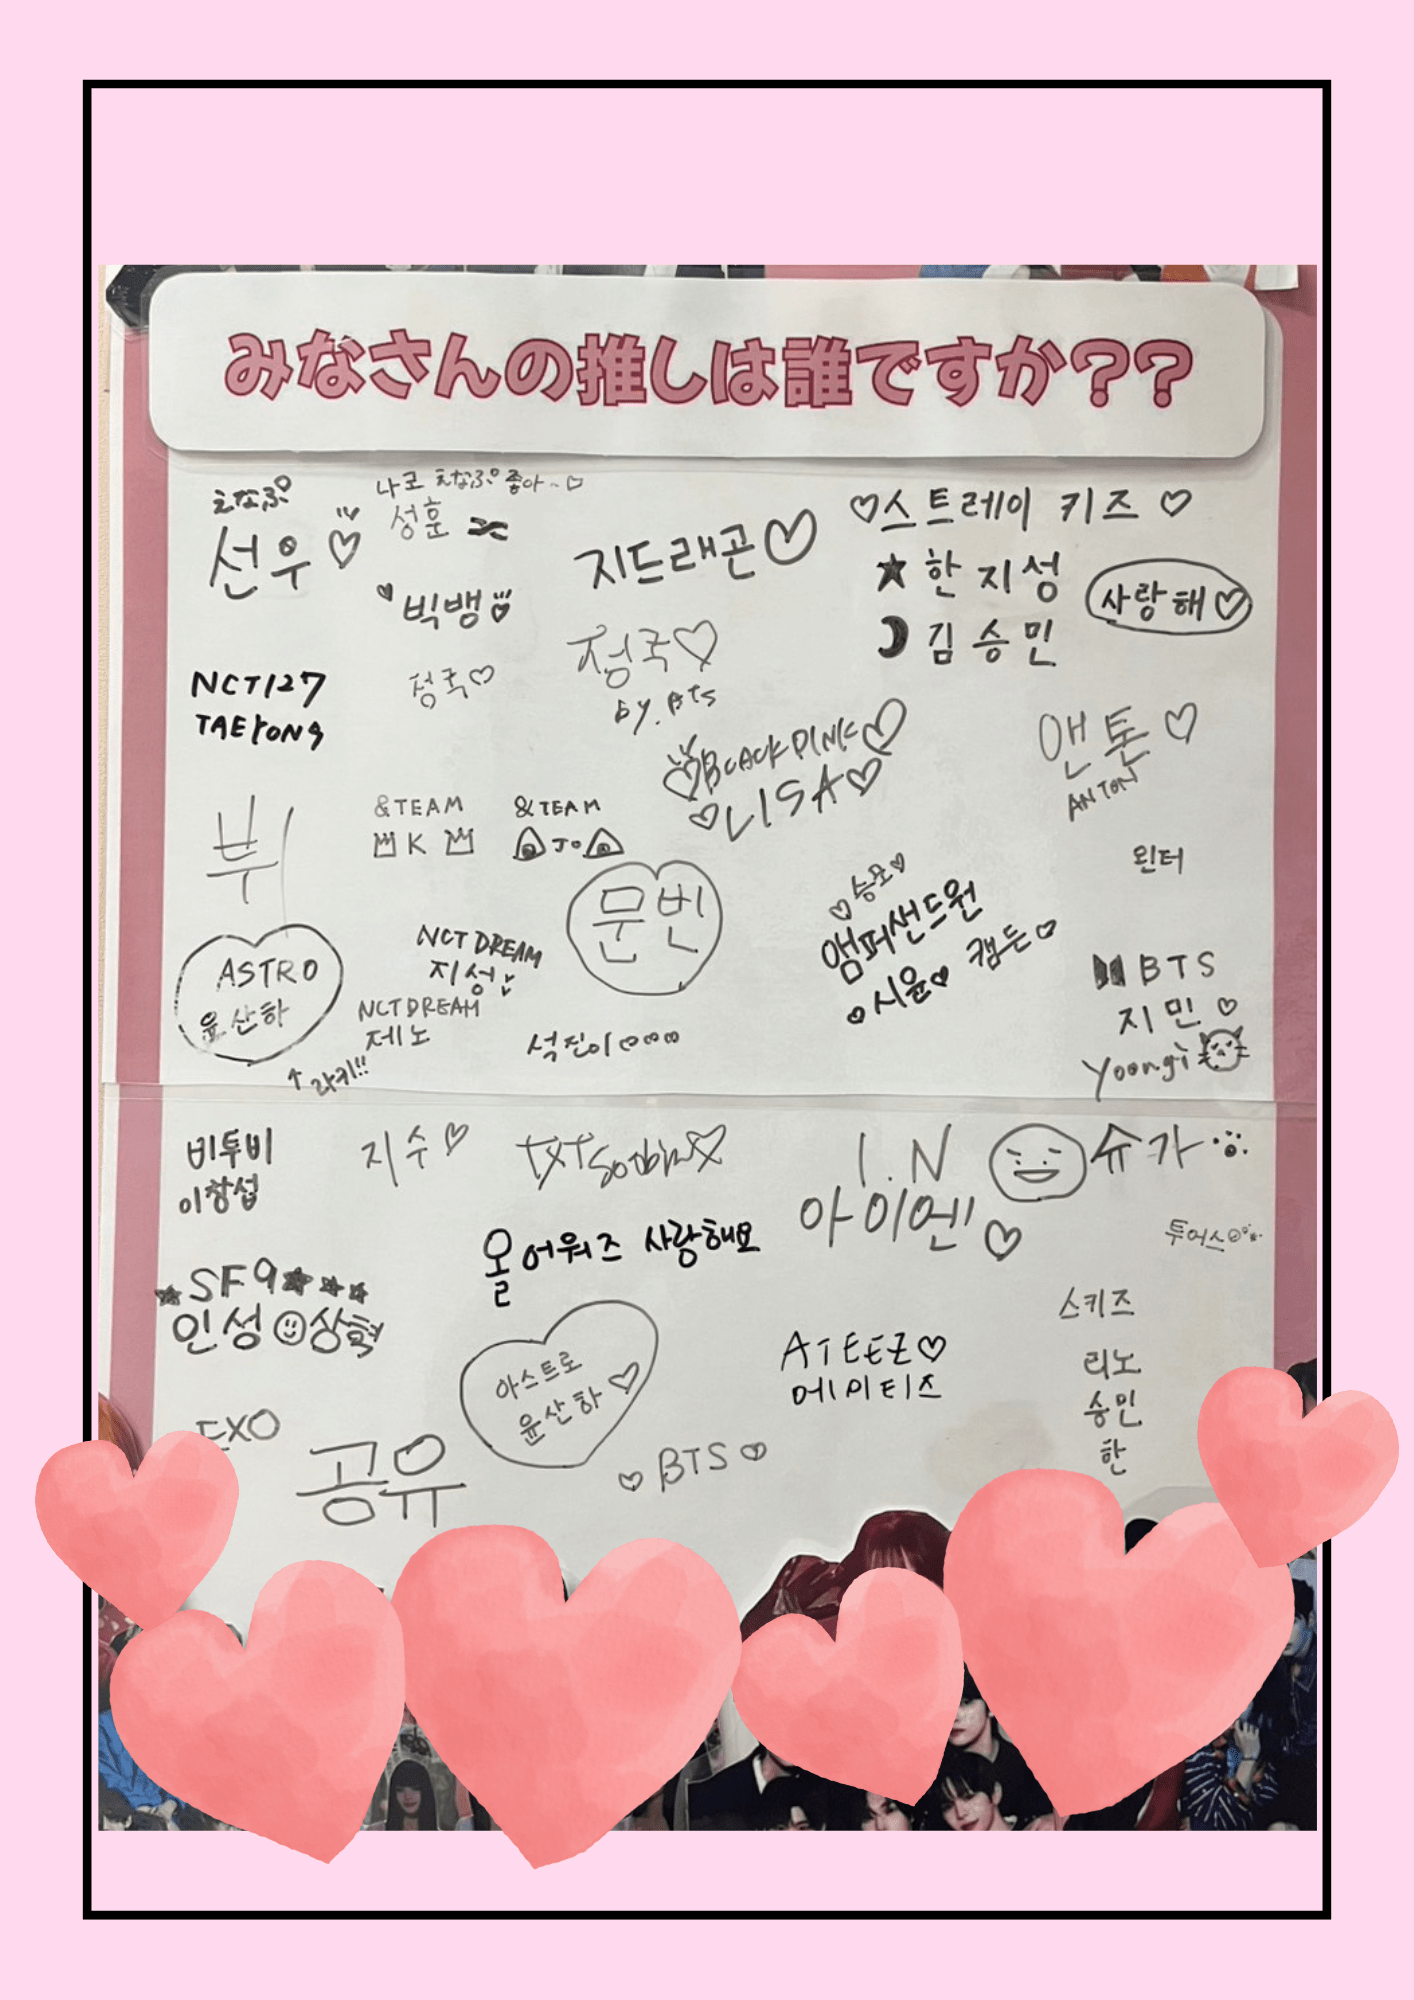 みなさんの推しは誰ですか??
えなぷ
선우♡
나코 えなぷ 좋아~♡
성훈
빅뱅
지드래곤♡
♡스트레이 키즈♡
★한지성
김승민
사랑해♡
NCT127
TAEYONG
정국♡
정국♡
by. BTS
BLACKPINK♡
♡LISA♡
앤톤♡
ANTON
뷔
&TEAM
K
&TEAM
JO
문빈
윈터
♡승모♡
앰퍼샌드원
캠든♡
♡시윤♡
ASTRO
윤산하
↑ 라키!!
NCT DREAM
지성
NCT DREAM
제노
석진이♡♡♡♡
BTS
지민♡
Yoongi
비투비
이창섭
지수♡
TXT Soobin♡
I.N
아이엔♡
슈가
투어스
올어워즈 사랑해요
★SF9★★★
인성☺상혁
아스트로
윤산하♡
ATEEZ♡
에이티즈
스키즈
리노
승민
한
EXO
공유
♡BTS♡